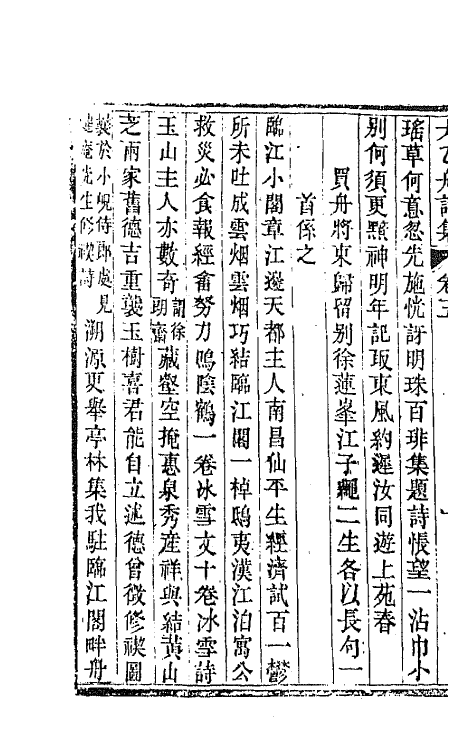 太乙舟詩集 卷五
瑤草何意忽先施恍訝明珠百琲集題詩悵望一沾巾小
别何須更黯神明年記取東風約遲汝同遊上苑春
買舟將東歸留别徐蓮峯江子繩二生各以長句一
首係之
臨江小閣章江邊天都主人南昌仙平生經濟試百一鬱
所未吐成雲烟雲烟巧結臨江閣一棹鴟夷漢江泊寓公
救災必食報經畬努力鳴陰鶴一卷冰雪文十卷冰雪詩
玉山主人亦數奇謂徐朗齋藏壑空掩惠泉秀産祥與結黄山
芝兩家舊德吉重襲玉樹喜君能自立述德曾徵修禊圖
裝於小峴侍郎處見健菴先生修禊詩溯源更舉亭林集我駐臨江閣畔舟